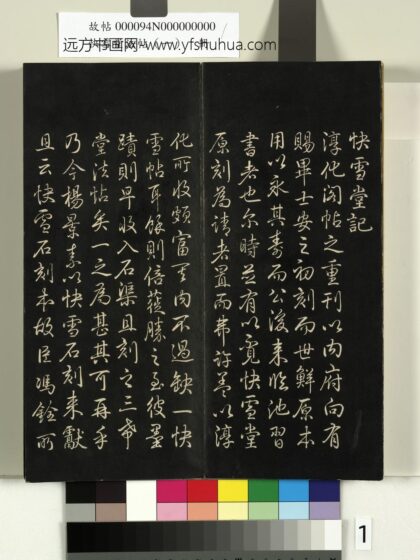 故帖 000094N000000000
远方书画网-www.yfshuhua.com
快雪堂記
淳化閣帖之重刊以内府向有
賜畢士安之初刻而世鮮原本
用以永其壽而公後来臨池習
書者也尔時並有以覓快雪堂
原刻為請者置而弗許蓋以淳
化所收頗富其内不過缺一快
雪帖耳餘則倍蓰勝之至彼墨
蹟則早收入石渠且刻之三希
堂法帖矣一之為甚其可再乎
乃今楊景素以快雪石刻来獻
且云快雪石刻本故臣馮銓所
1